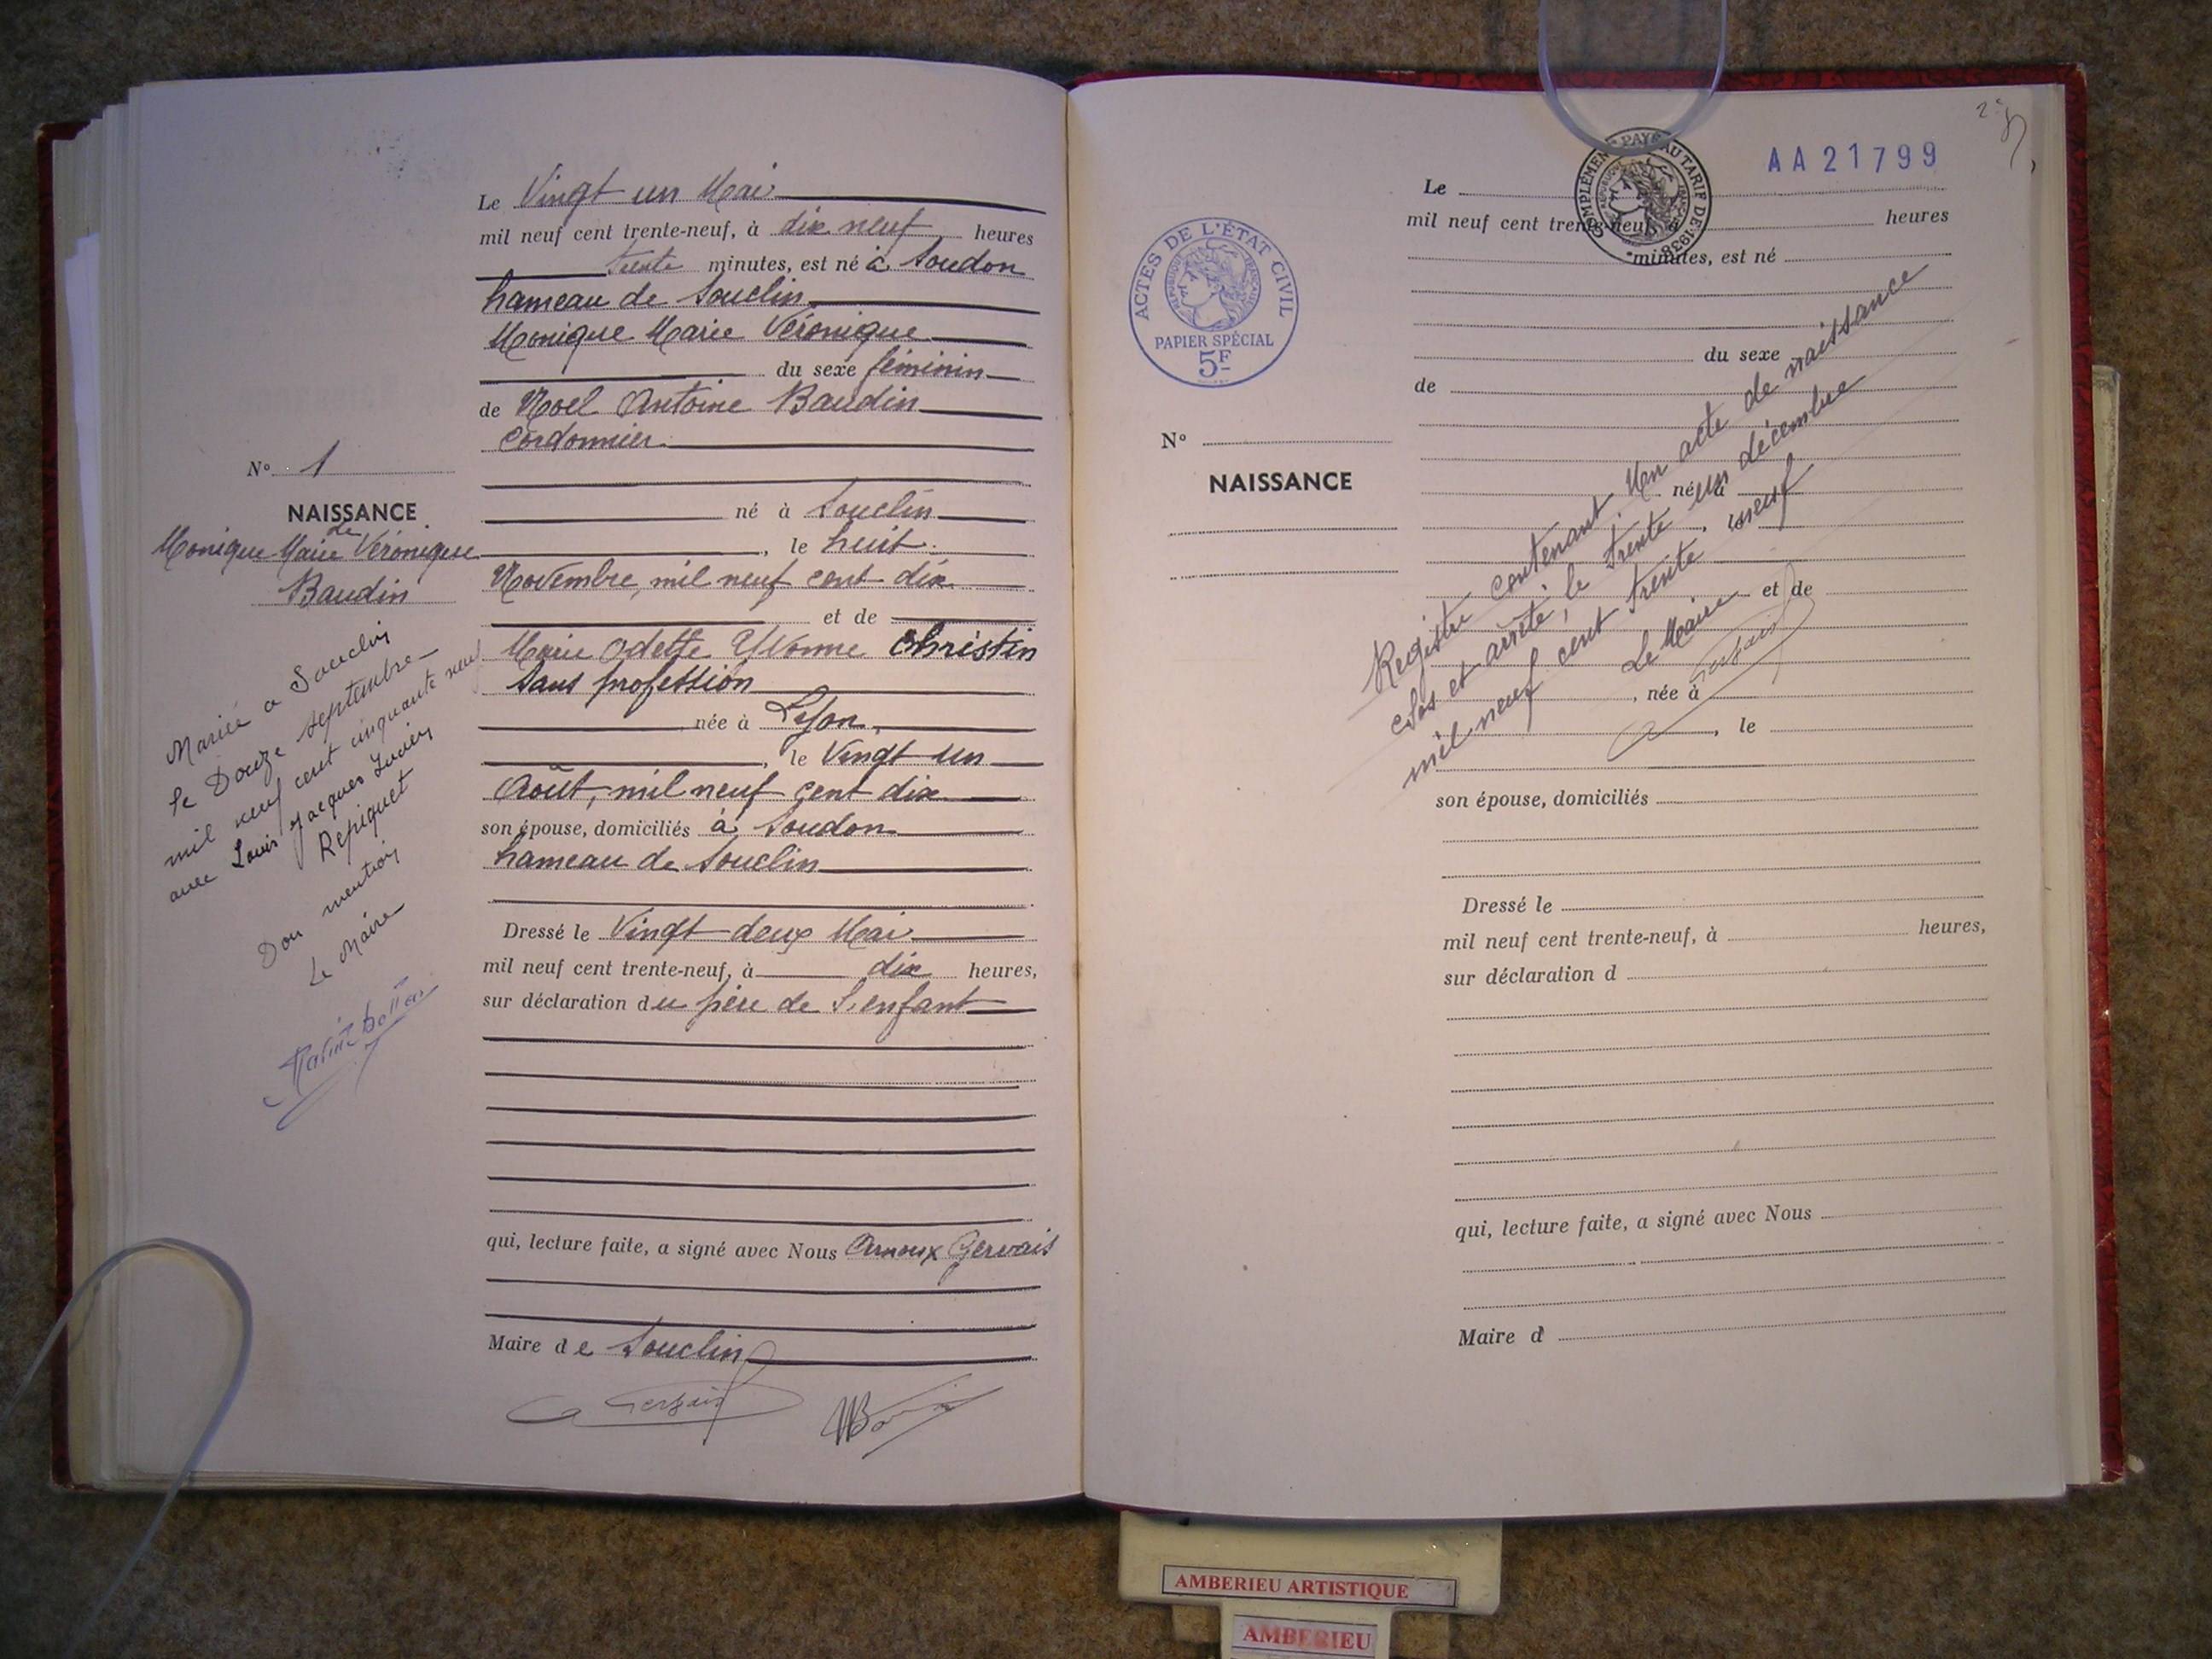 Le Vingt un Mai
mil neuf cent trente-neuf, à dix neuf heures
trente minutes, est né à Soudon
hameau de Souclin
Monique Marie Véronique
du sexe féminin
de Noel Antoine Baudin
Cordonnier
né à Souclin
, le huit
Novembre, mil neuf cent dix
et de
Marie Odette Yvonne Christin
Sans profession
née à Lyon,
, le Vingt un
Août, mil neuf cent dix
son épouse, domiciliés à Soudon
hameau de Souclin
Dressé le Vingt deux Mai
mil neuf cent trente-neuf, à dix heures,
sur déclaration du père de l'enfant
qui, lecture faite, a signé avec Nous Arnoux Gervais
Maire de Souclin
N° 1
NAISSANCE
de
Monique Marie Véronique
Baudin
Mariée a Souclin
le Douze septembre
mil neuf cent cinquante neuf
avec Louis Jacques Lucien
Repiquet
Don mention
Le Maire
2
AA21799
COMPLÉMENT PAYÉ AU TARIF DE 1938
RÉPUBLIQUE FRANÇAISE
ACTES DE L'ÉTAT CIVIL
RÉPUBLIQUE FRANÇAISE
PAPIER SPÉCIAL
5F
N°
NAISSANCE
Le
mil neuf cent trente-neuf, à heures
minutes, est né
du sexe
de
né à
, le
et de
, née à
, le
son épouse, domiciliés
Dressé le
mil neuf cent trente-neuf, à heures,
sur déclaration d
qui, lecture faite, a signé avec Nous
Maire d
Registre contenant Un acte de naissance
clos et arrêté, le trente un décembre
mil neuf cent trente neuf
Le Maire
AMBERIEU ARTISTIQUE
AMBERIEU